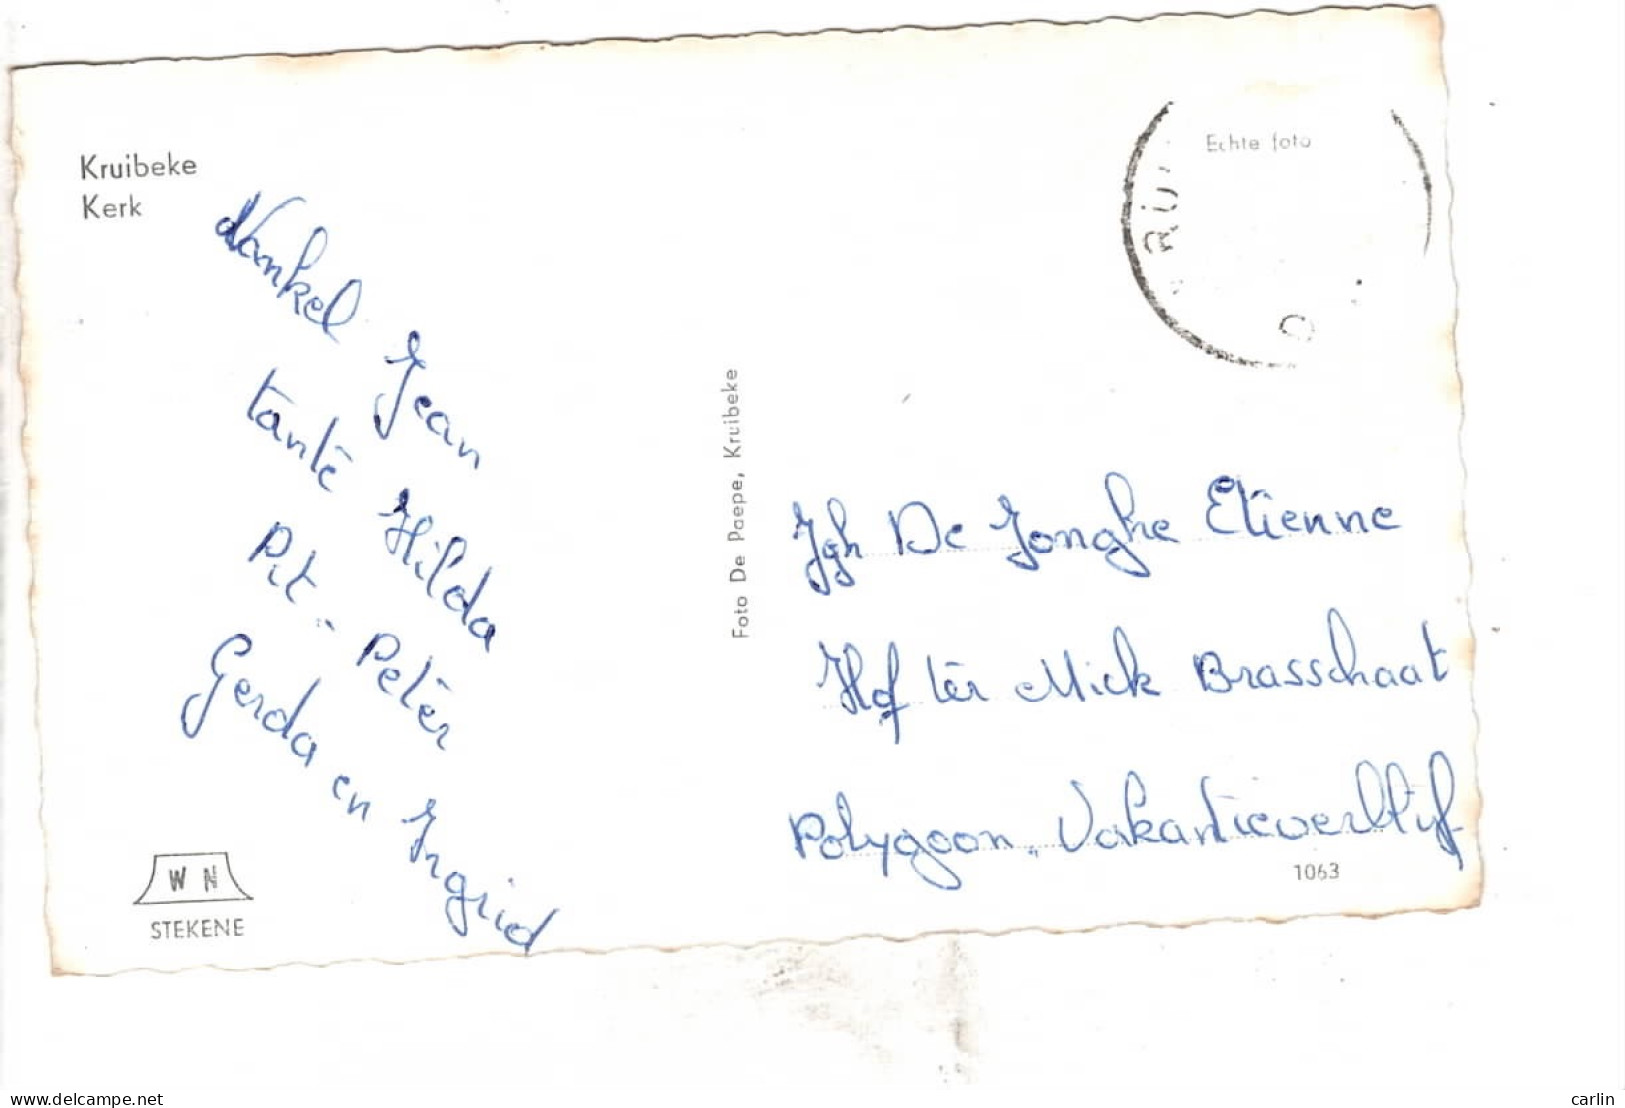 Kruibeke
Kerk
Nonkel Jean
tante Hilda
Pit - Peter
Gerda en Ingrid
W N
STEKENE
Foto De Paepe, Kruibeke
Echte foto
Jgh De Jonghe Etienne
Hof ter Mick Brasschaat
Polygoon - Vakantieverblijf
1063
www.delcampe.net
carlin